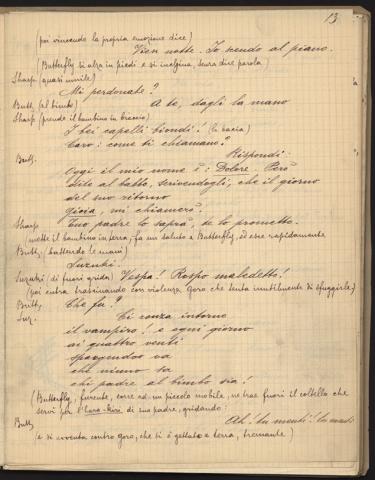 13
(poi vincendo la propria emozione dice)
Vien notte. Io scendo al piano.
(Butterfly si alza in piedi e si inchina, senza dire parola)
Sharp. (quasi umile)
Mi perdonate?
Butt. (al bimbo) A te, dagli la mano
Sharp. (prende il bambino in braccio)
I bei capelli biondi! (lo bacia)
Caro: come ti chiamano?
Butt. Rispondi:
Oggi il mio nome è: Dolore. Però
dite al babbo, scrivendogli, che il giorno
del suo ritorno
Gioia, mi chiamerò.
Sharp. Tuo padre lo saprà, te lo prometto.
(mette il bambino in terra, fa un saluto a Butterfly, ed esce rapidamente
Butt. (battendo le mani)
Suzuki.
Suzuki (di fuori grida) Vespa! Rospo maledetto!
(poi entra trascinando con violenza Goro che tenta inutilmente di sfuggirle)
Butt. Che fu?
Suz. Ci ronza intorno
il vampiro! e ogni giorno
ai quattro venti
spargendo va
che niuno sa
chi padre al bimbo sia!
(Butterfly, furente, corre ad un piccolo mobile, ne trae fuori il coltello che
servì per l'Hara-Kiri di suo padre, gridando:
Butt. Ah! tu menti! tu menti
(e si avventa contro Goro, che si è gettato a terra, tremante)